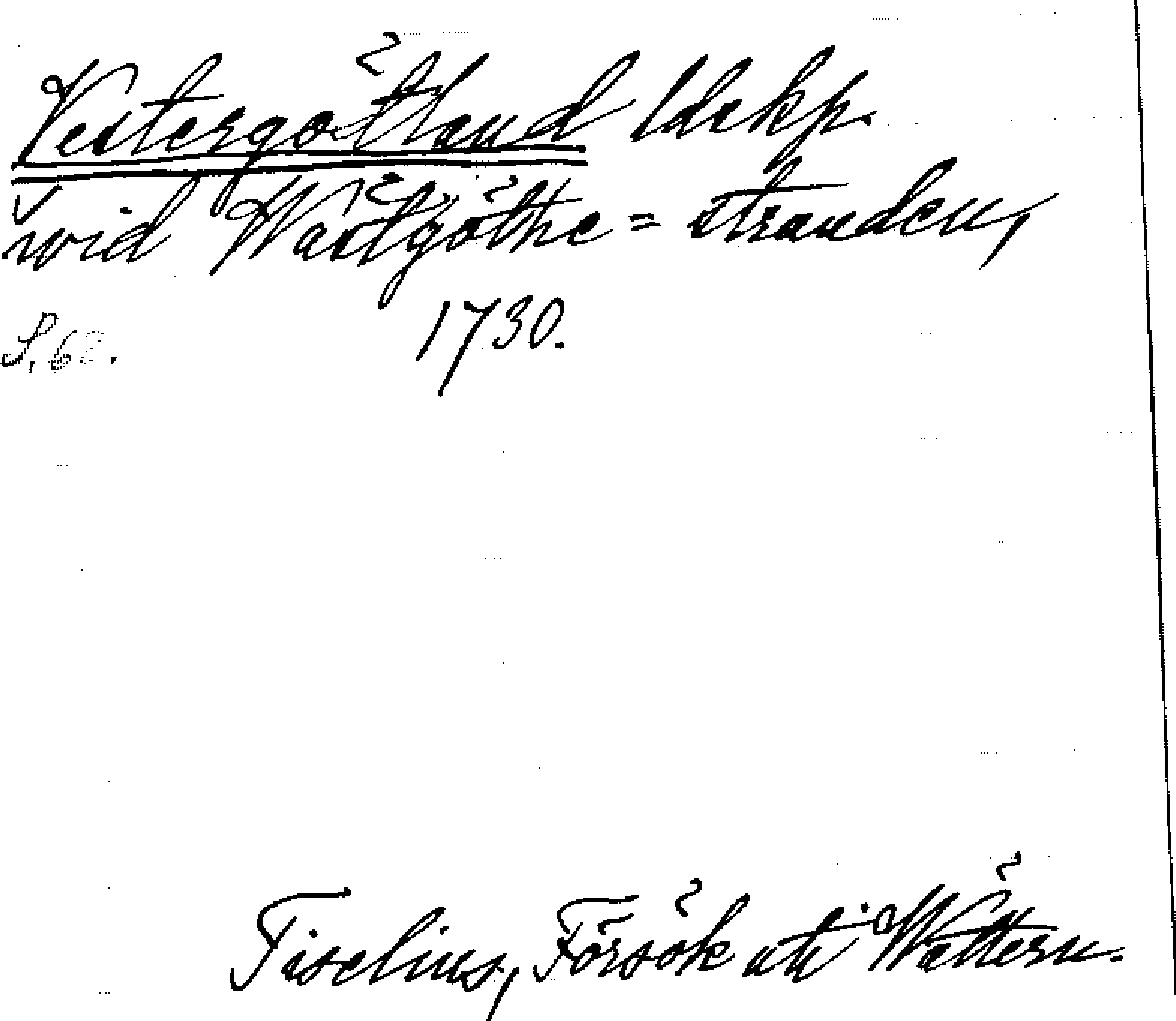 Vestergötland ldskp.
wid Wästgöthe=stranden,
S. 62. 1730.
Tiselius, Försök uti Wättern.